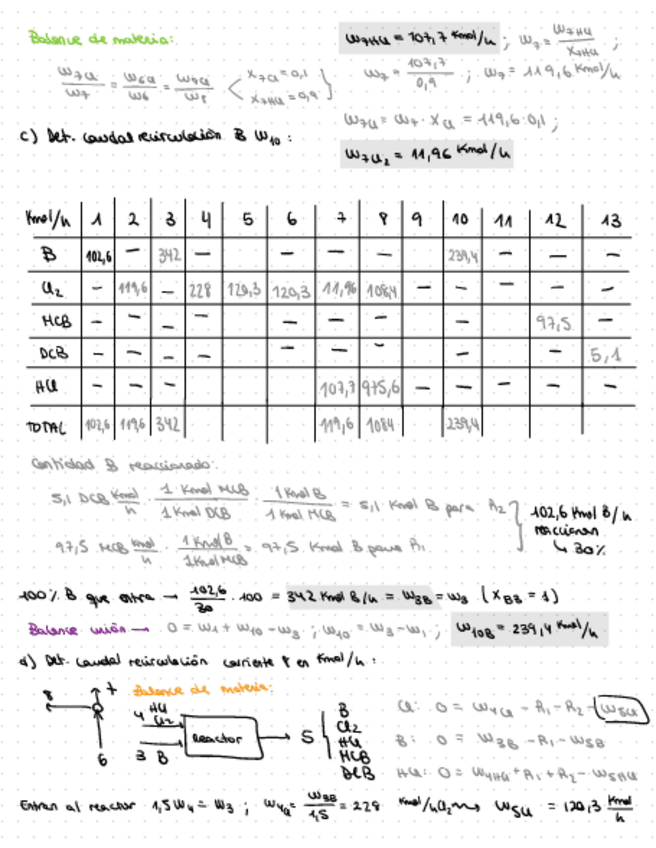 Balance de materia:
w7HCl = 107,7 Kmol/h ; w7 = w7HCl / x7HCl ;
w7Cl / w7 = w6Cl / w6 = w8Cl / w8 < x7Cl = 0,1 x7HCl = 0,9 }
w7 = 107,7 / 0,9 ; w7 = 119,6 Kmol/h
w7Cl = w7 · xCl = 119,6 · 0,1 ;
c) Det. caudal recirculación B w10 :
w7Cl2 = 11,96 Kmol/h
Kmol/h 1 2 3 4 5 6 7 8 9 10 11 12 13
B 102,6 — 342 — — — — 239,4 — — —
Cl2 — 119,6 — 228 120,3 120,3 11,96 108,4 — — — — —
MCB — — — — — — — — 97,5 —
DCB — — — — — — — — — 5,1
HCl — — — 107,7 975,6 — — — — —
TOTAL 102,6 119,6 342 119,6 1084 239,4
Cantidad B reaccionado:
5,1 DCB Kmol/h · 1 Kmol MCB / 1 Kmol DCB · 1 Kmol B / 1 Kmol MCB = 5,1 Kmol B para R2
97,5 MCB Kmol/h · 1 Kmol B / 1 Kmol MCB = 97,5 Kmol B para R1
} 102,6 Kmol B/h
reaccionan
↳ 30%
100% B que entra → 102,6 / 30 · 100 = 342 Kmol B/h = w3B = w3 (xB3 = 1)
Balance unión → 0 = w1 + w10 - w3 ; w10 = w3 - w1 ; w10B = 239,4 Kmol/h
d) Det. caudal recirculación corriente 8 en Kmol/h :
Balance de materia:
8 7
6
4 HCl Cl2
3 B
Reactor
5
B
Cl2
HCl
MCB
DCB
Cl: 0 = w4Cl - R1 - R2 - w5Cl
B: 0 = w3B - R1 - w5B
HCl: 0 = w4HCl + R1 + R2 - w5HCl
Entran al reactor 1,5 w4 = w3 ; w4Cl = w3B / 1,5 = 228 Kmol/h Cl2 → w5Cl = 120,3 Kmol/h